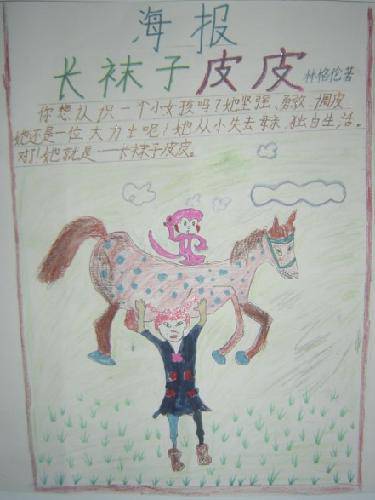 海报
长袜子皮皮 林格伦著
你想认识一个小女孩吗？她坚强、勇敢、调皮
她还是一位大力士呢！她从小失去母亲，独自生活。
对！她就是——长袜子皮皮。